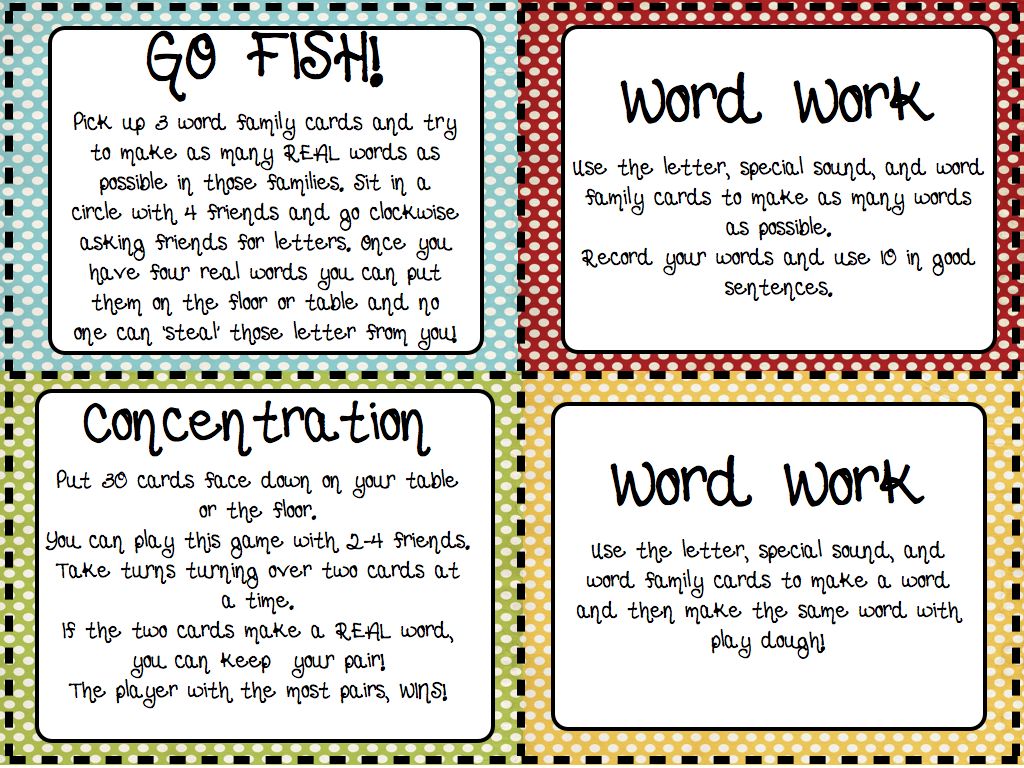 GO FISH!
Pick up 3 word family cards and try
to make as many REAL words as
possible in those families. Sit in a
circle with 4 friends and go clockwise
asking friends for letters. Once you
have four real words you can put
them on the floor or table and no
one can 'steal' those letter from you!
Word Work
Use the letter, special sound, and word
family cards to make as many words
as possible.
Record your words and use 10 in good
sentences.
Concentration
Put 30 cards face down on your table
or the floor.
You can play this game with 2-4 friends.
Take turns turning over two cards at
a time.
If the two cards make a REAL word,
you can keep your pair!
The player with the most pairs, WINS!
Word Work
Use the letter, special sound, and
word family cards to make a word
and then make the same word with
play dough!